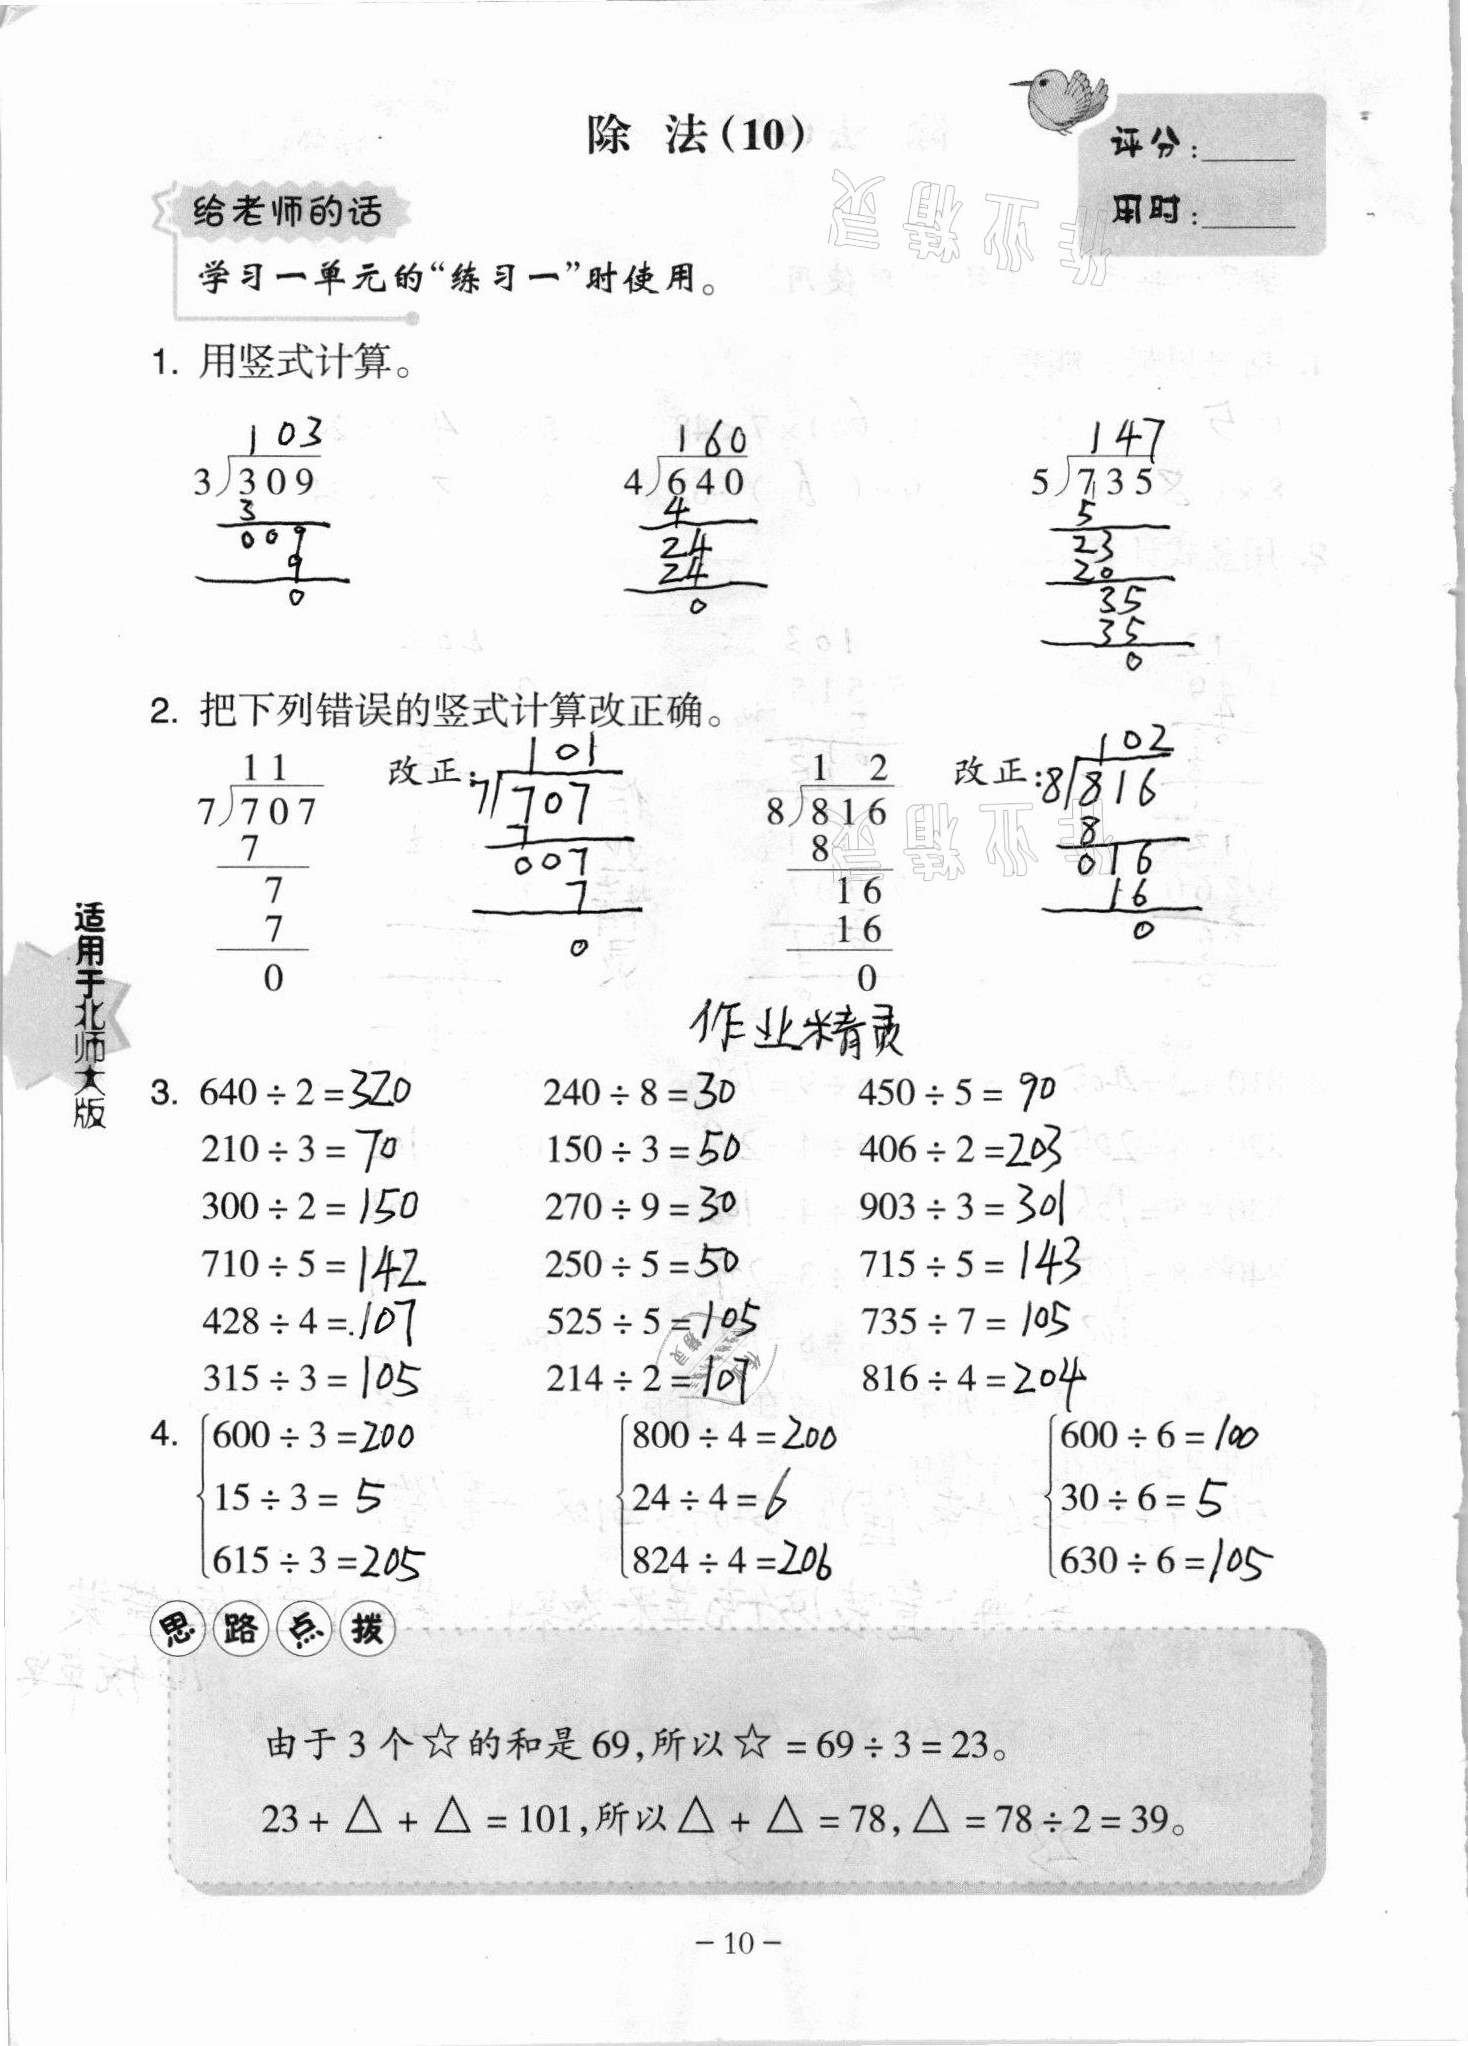 除 法(10)
评分:
用时:
给老师的话
学习一单元的“练习一”时使用。
1. 用竖式计算。
103 160 147
3 309 4 640 5 735
3 4 5
009 24 23
9 24 20
0 0 35
35
0
2. 把下列错误的竖式计算改正确。
11 改正: 101 1 2 改正: 102
7 707 7 707 8 816 8 816
7 7 8 8
7 007 16 016
7 7 16 16
0 0 0 0
作业精灵
3. 640÷2=320 240÷8=30 450÷5=90
210÷3=70 150÷3=50 406÷2=203
300÷2=150 270÷9=30 903÷3=301
710÷5=142 250÷5=50 715÷5=143
428÷4=107 525÷5=105 735÷7=105
315÷3=105 214÷2=107 816÷4=204
4. 600÷3=200 800÷4=200 600÷6=100
15÷3=5 24÷4=6 30÷6=5
615÷3=205 824÷4=206 630÷6=105
思路点拨
由于3个☆的和是69,所以☆=69÷3=23。
23+△+△=101,所以△+△=78,△=78÷2=39。
适用于北师大版
-10-
作业精灵
作业精灵